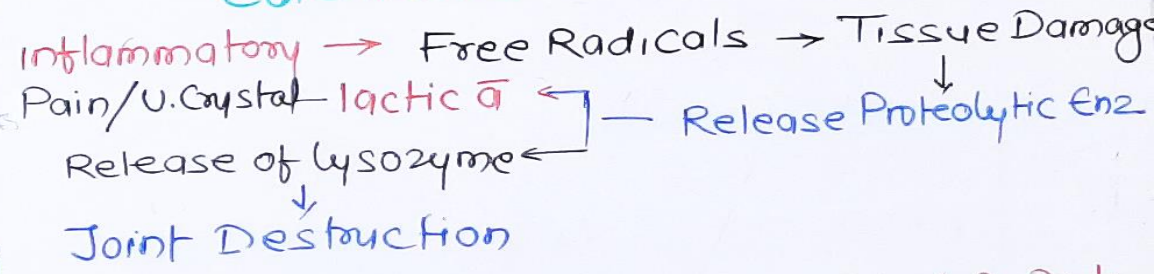 Inflammatory → Free Radicals → Tissue Damage
↓
Pain/U.Crystal - lactic a̅ ← — Release Proteolytic Enz
Release of lysozyme ←
↓
Joint Destruction